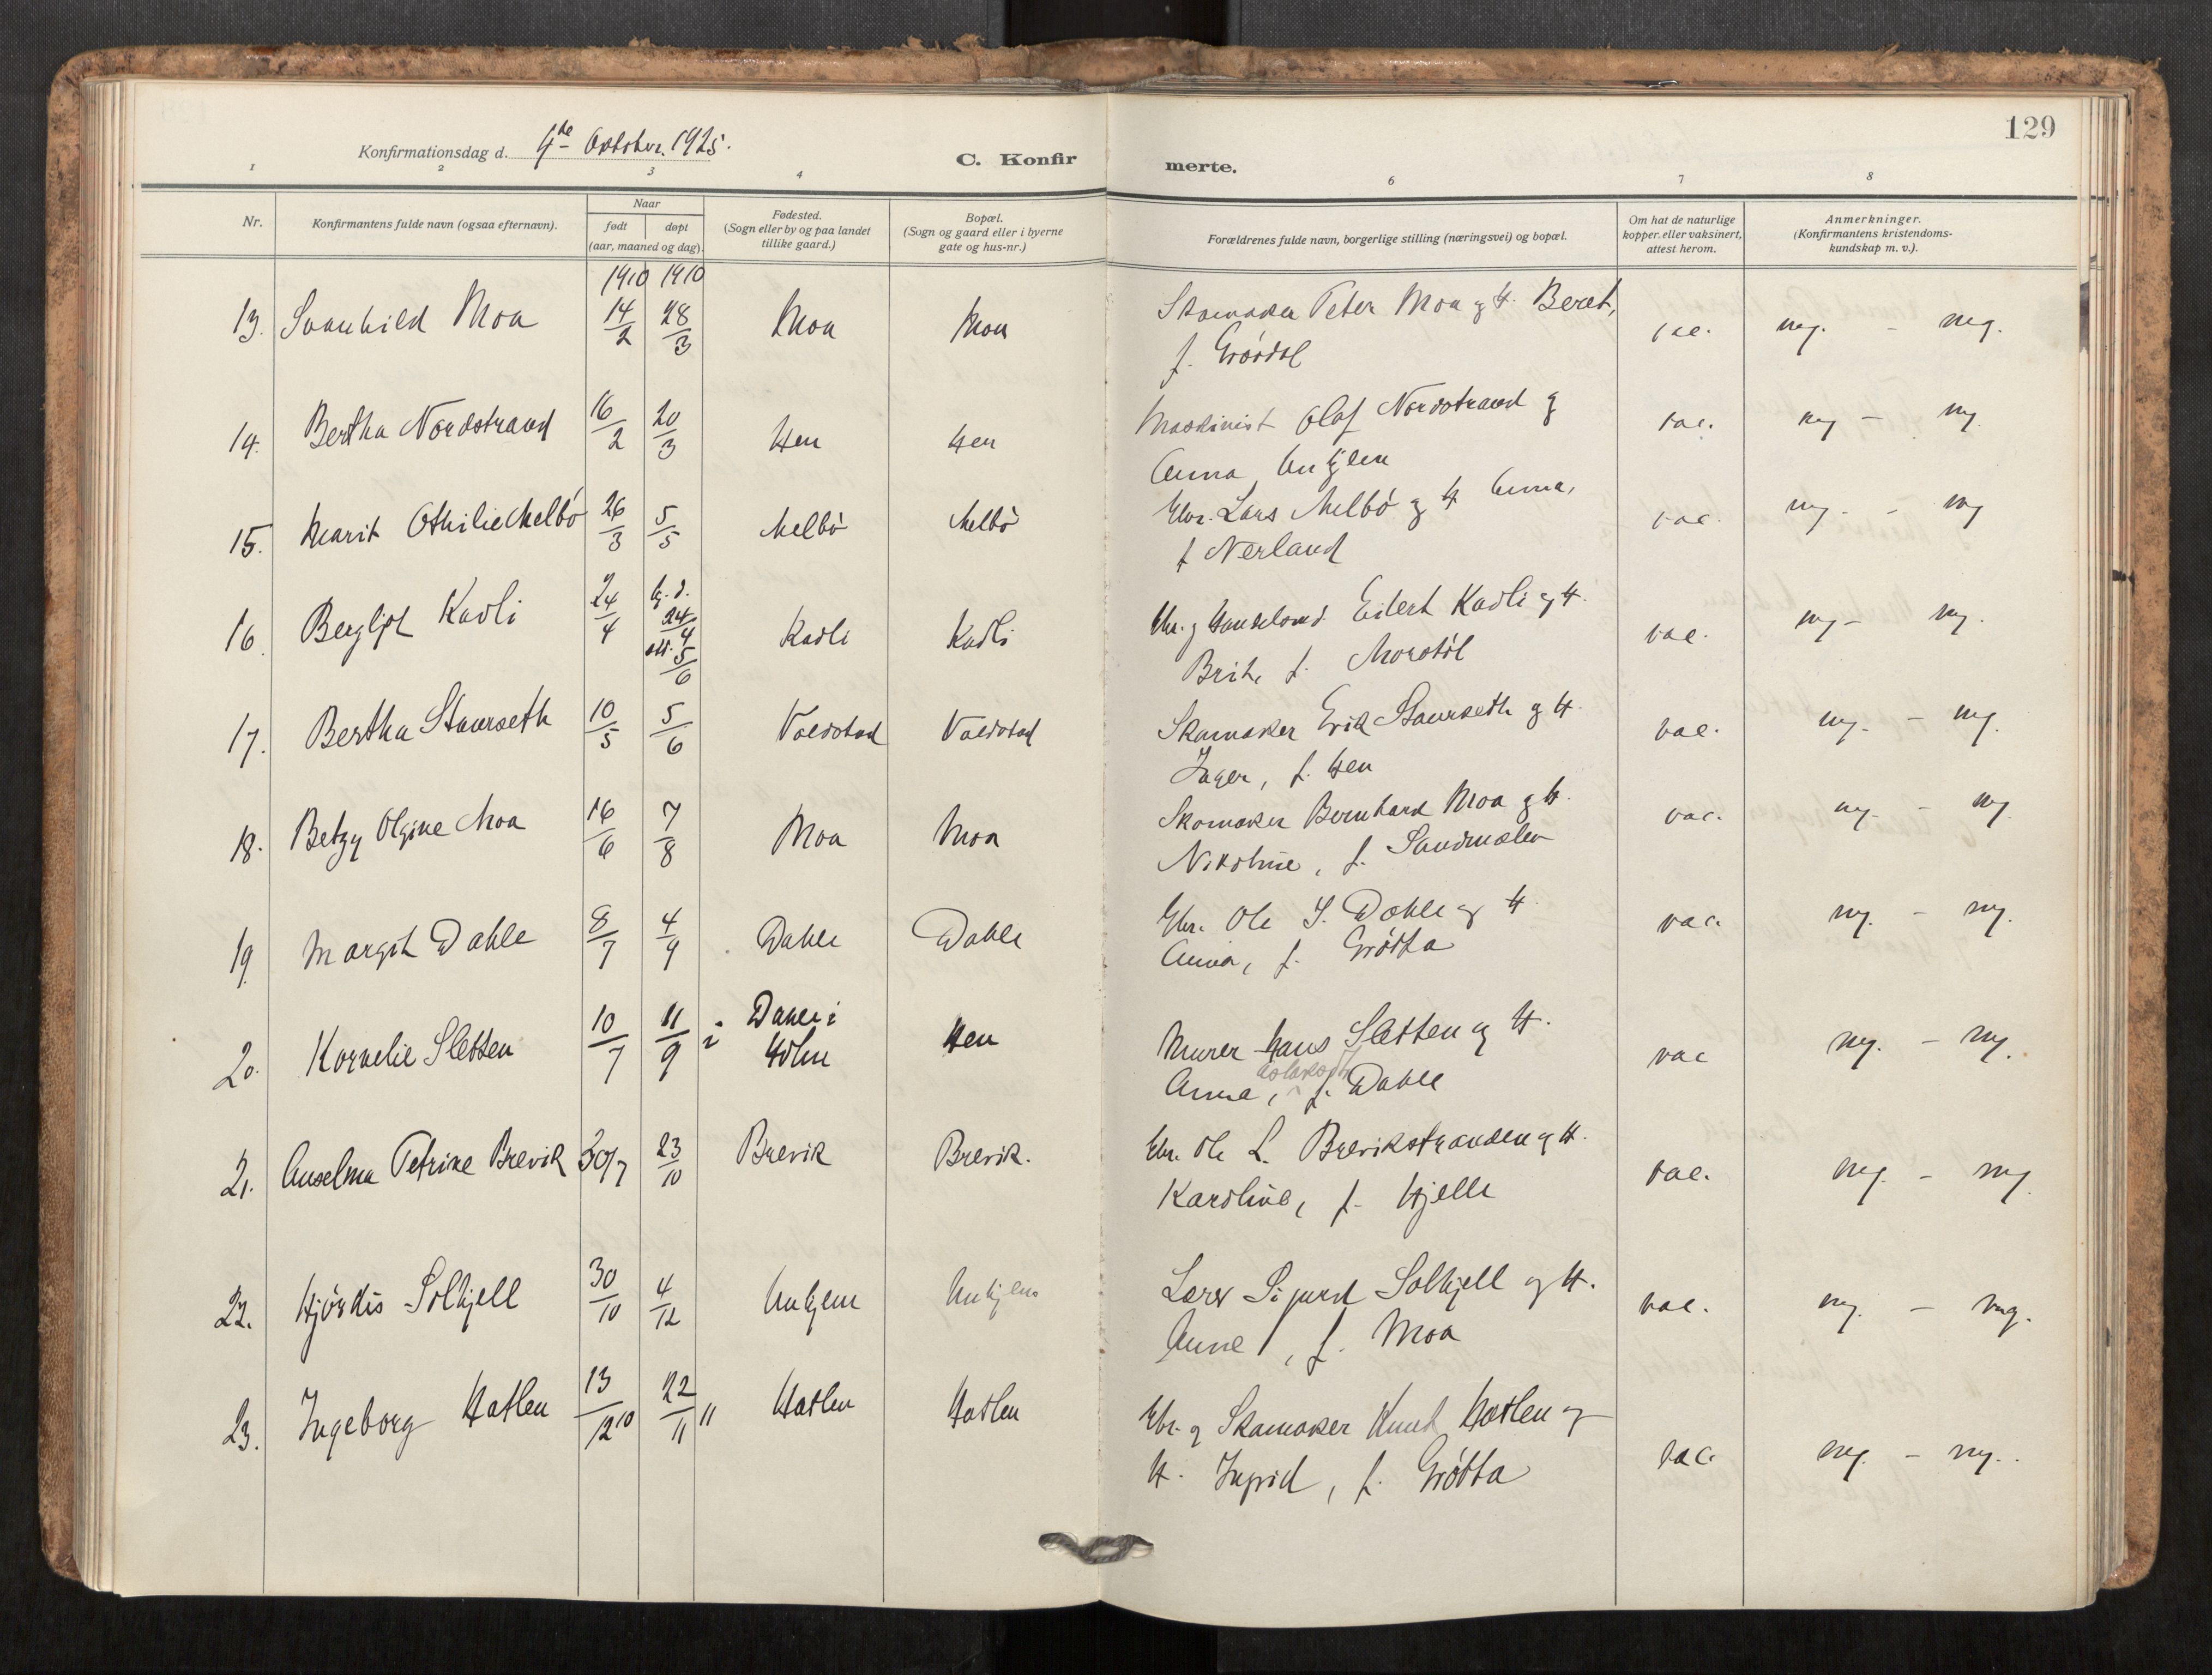 129
Konfirmationsdag d. 4de Oktober 1925.
C. Konfir
merte.
1 2 3 4 6 7 8
Nr.
Konfirmantens fulde navn (ogsaa efternavn).
Naar
født døpt
(aar, maaned og dag).
Fødested.
(Sogn eller by og paa landet
tillike gaard.)
Bopæl.
(Sogn og gaard eller i byerne
gate og hus-nr.)
Forældrenes fulde navn, borgerlige stilling (næringsvei) og bopæl.
Om hat de naturlige
kopper eller vaksinert,
attest herom.
Anmerkninger.
(Konfirmantens kristendoms-
kundskap m. v.).
1910 1910
13. Svanhild Moa 14/2 28/3 Moa Moa Skomaker Peter Moa og H. Beret, vac. mg. - mg.
f. Grövdal
14. Bertha Nordstrand 16/2 20/3 Hen Hen Maskinist Olaf Nordstrand og vac. mg - mg.
Anna Unhjem
15. Marit Othilie Melbö 26/3 5/5 Melbö Melbö Gbr. Lars Melbö og H Anna, vac. mg. - mg
f Nerland
16. Bergljot Kavli 24/4 hj. d. 24/4 st. 5/6 Kavli Kavli Gbr. g Eilert Kavli og H. vac. mg - mg.
Brit, f. Morstöl
17. Bertha Staurseth 10/5 5/6 Voldstad Voldstad Skomaker Erik Staurseth og H. vac. mg. - mg.
Inger, f. Hen
18. Betzy Olgine Moa 16/6 7/8 Moa Moa Skomaker Bernhard Moa og H. vac. mg - mg
Nikoline, f. Sandmælen
19. Margit Dahle 8/7 4/9 Dahle Dahle Gbr. Ole S. Dahle og H. vac. mg. - mg.
Anna, f. Grötta
20. Kornelie Sletten 10/7 11/9 i Dahle i Hen Murer Hans Sletten og H. vac mg. - mg.
Holm Anna, f. Dahle
21. Anselma Petrine Brevik 30/7 23/10 Brevik Brevik. Gbr. Ole L. Brevikstranden og H. vac. mg. - mg.
Karoline, f. Hjelle
22. Hjördis Solhjell 30/10 4/12 Unhjem Unhjem Lærer Sigurd Solhjell og H. vac. mg. - mg.
Anne, f. Moa
23. Ingeborg Hatlen 13/12 10 22/11 11 Hatlen Hatlen Gbr. g Skomaker Knut Hatlen og vac. mg. - mg.
H. Ingrid, f. Grötta